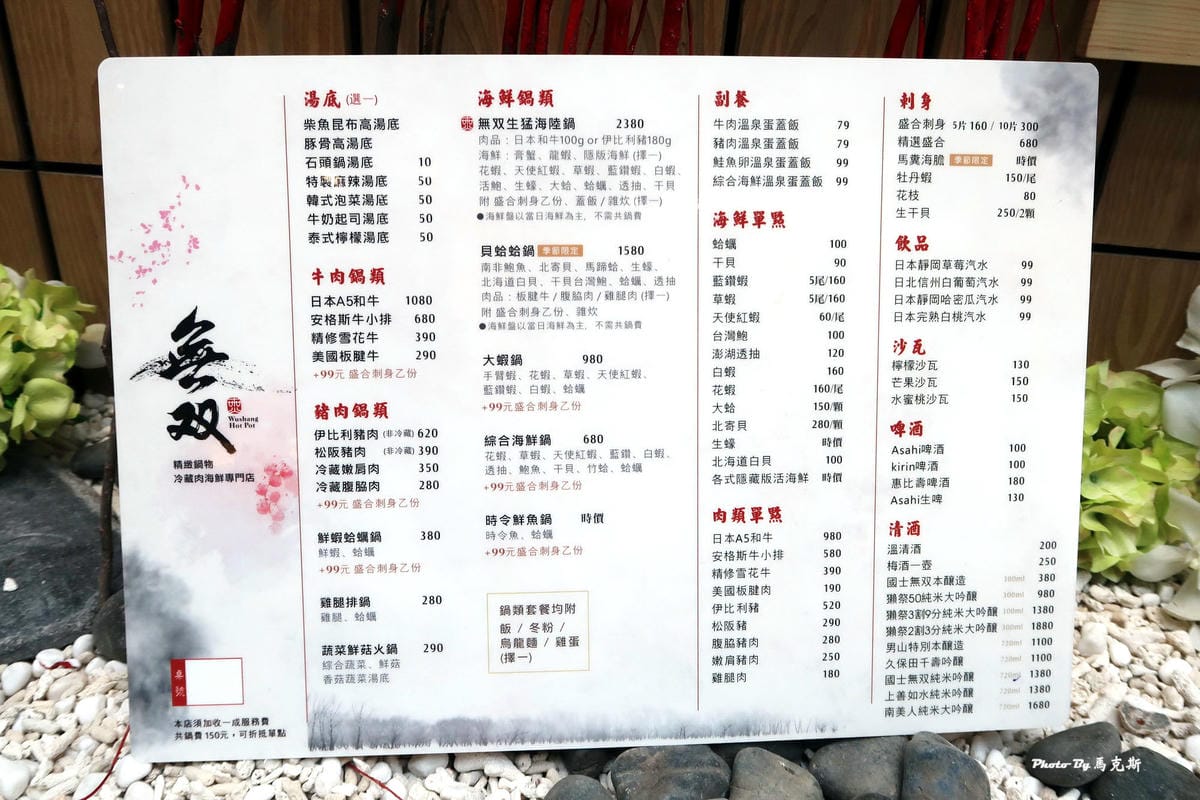 無双
Wushang
Hot Pot
精緻鍋物
冷藏肉海鮮專門店
桌號
本店須加收一成服務費
共鍋費150元，可折抵單點
湯底(選一)
柴魚昆布高湯底
豚骨高湯底
石頭鍋湯底 10
特製麻辣湯底 50
韓式泡菜湯底 50
牛奶起司湯底 50
泰式檸檬湯底 50
牛肉鍋類
日本A5和牛 1080
安格斯牛小排 680
精修雪花牛 390
美國板腱牛 290
+99元 盛合刺身乙份
豬肉鍋類
伊比利豬肉 (非冷藏) 620
松阪豬肉 (非冷藏) 390
冷藏嫩肩肉 350
冷藏腹脇肉 280
+99元 盛合刺身乙份
鮮蝦蛤蠣鍋 380
鮮蝦、蛤蠣
+99元 盛合刺身乙份
雞腿排鍋 280
雞腿、蛤蠣
蔬菜鮮菇火鍋 290
綜合蔬菜、鮮菇
香菇蔬菜湯底
海鮮鍋類
無双生猛海陸鍋 2380
肉品：日本和牛100g or 伊比利豬180g
海鮮：膏蟹、龍蝦、隱版海鮮 (擇一)
花蝦、天使紅蝦、草蝦、藍鑽蝦、白蝦、
活鮑、生蠔、大蛤、蛤蠣、透抽、干貝
附 盛合刺身乙份、蓋飯 / 雜炊 (擇一)
●海鮮盤以當日海鮮為主，不需共鍋費
貝蛤蛤鍋 季節限定 1580
南非鮑魚、北寄貝、馬蹄蛤、生蠔、
北海道白貝、干貝台灣鮑、蛤蠣、透抽
肉品：板腱牛 / 腹脇肉 / 雞腿肉 (擇一)
附 盛合刺身乙份、雜炊
●海鮮盤以當日海鮮為主，不需共鍋費
大蝦鍋 980
手臂蝦、花蝦、草蝦、天使紅蝦、
藍鑽蝦、白蝦、蛤蠣
+99元盛合刺身乙份
綜合海鮮鍋 680
花蝦、草蝦、天使紅蝦、藍鑽、白蝦、
透抽、鮑魚、干貝、竹蛤、蛤蠣
+99元盛合刺身乙份
時令鮮魚鍋 時價
時令魚、蛤蠣
+99元盛合刺身乙份
鍋類套餐均附
飯 / 冬粉 /
烏龍麵 / 雞蛋
(擇一)
副餐
牛肉溫泉蛋蓋飯 79
豬肉溫泉蛋蓋飯 79
鮭魚卵溫泉蛋蓋飯 99
綜合海鮮溫泉蛋蓋飯 99
海鮮單點
蛤蠣 100
干貝 90
藍鑽蝦 5尾/160
草蝦 5尾/160
天使紅蝦 60/尾
台灣鮑 100
澎湖透抽 120
白蝦 160
花蝦 160/尾
大蛤 150/顆
北寄貝 280/顆
生蠔 時價
北海道白貝 100
各式隱藏版活海鮮 時價
肉類單點
日本A5和牛 980
安格斯牛小排 580
精修雪花牛 390
美國板腱肉 190
伊比利豬 520
松阪豬 290
腹脇豬肉 280
嫩肩豬肉 250
雞腿肉 180
刺身
盛合刺身 5片160 / 10片300
精選盛合 680
馬糞海膽 季節限定 時價
牡丹蝦 150/尾
花枝 80
生干貝 250/2顆
飲品
日本靜岡草莓汽水 99
日北信州白葡萄汽水 99
日本靜岡哈密瓜汽水 99
日本完熟白桃汽水 99
沙瓦
檸檬沙瓦 130
芒果沙瓦 150
水蜜桃沙瓦 150
啤酒
Asahi啤酒 100
kirin啤酒 100
惠比壽啤酒 180
Asahi生啤 130
清酒
溫清酒 200
梅酒一壺 250
國士無双本釀造 300ml 380
獺祭50純米大吟釀 300ml 980
獺祭3割9分純米大吟釀 300ml 1380
獺祭2割3分純米大吟釀 300ml 1880
男山特別本釀造 720ml 1100
久保田千壽吟釀 720ml 1100
國士無双純米吟釀 720ml 1380
上善如水純米吟釀 720ml 1380
南美人純米大吟釀 720ml 1680
Photo By 馬克斯